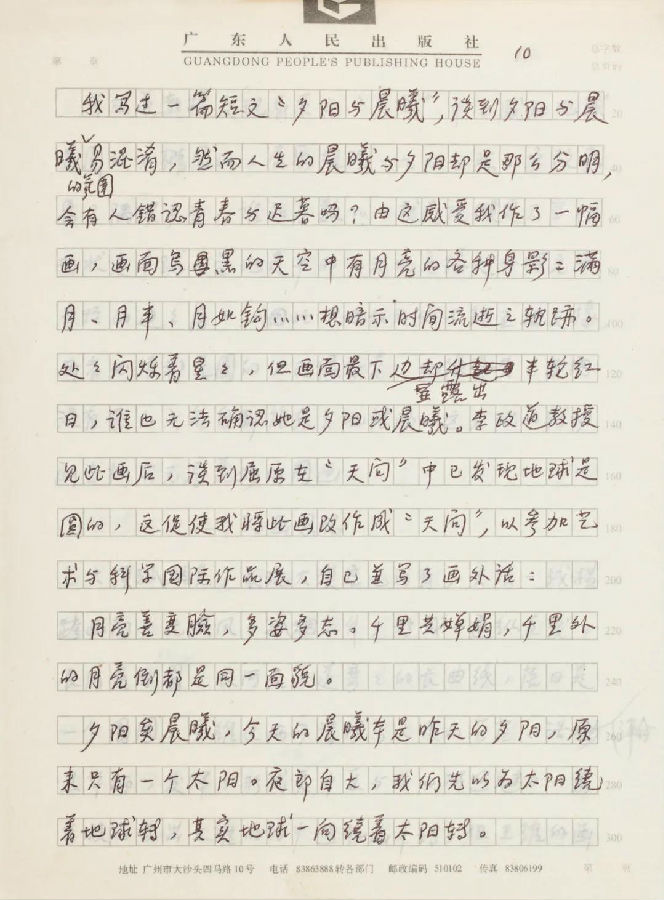 广东人民出版社
GUANGDONG PEOPLE'S PUBLISHING HOUSE
10
第 章
20
我写过一篇短文“夕阳与晨曦”,谈到夕阳与晨
曦易混淆,然而人生的晨曦与夕阳却是那么分明,
的氛围
会有人错认青春与迟暮吗?由这感受我作了一幅
60
画,画面乌黑的天空中有月亮的各种身影:满
80
月、月半、月如钩……想暗示时间流逝之轨迹。
100
处处闪烁着星星,但画面最下边却半轮红
120
显露出
日,谁也无法确认她是夕阳或晨曦。李政道教授
140
见此画后,谈到屈原在“天问”中已发现地球是
160
圆的,这促使我将此画改作成“天问”,以参加艺
180
术与科学国际作品展,自己并写了画外话:
200
月亮善变脸,多姿多态。千里共婵娟,千里外
220
的月亮倒都是同一面貌。
240
夕阳矣晨曦,今天的晨曦本是昨天的夕阳,原
260
来只有一个太阳。夜郎自大,我们先以为太阳绕
280
着地球转,其实地球一向绕着太阳转。
300
地址 广州市大沙头四马路10号 电话 83863888转各部门 邮政编码 510102 传真 83806199
第